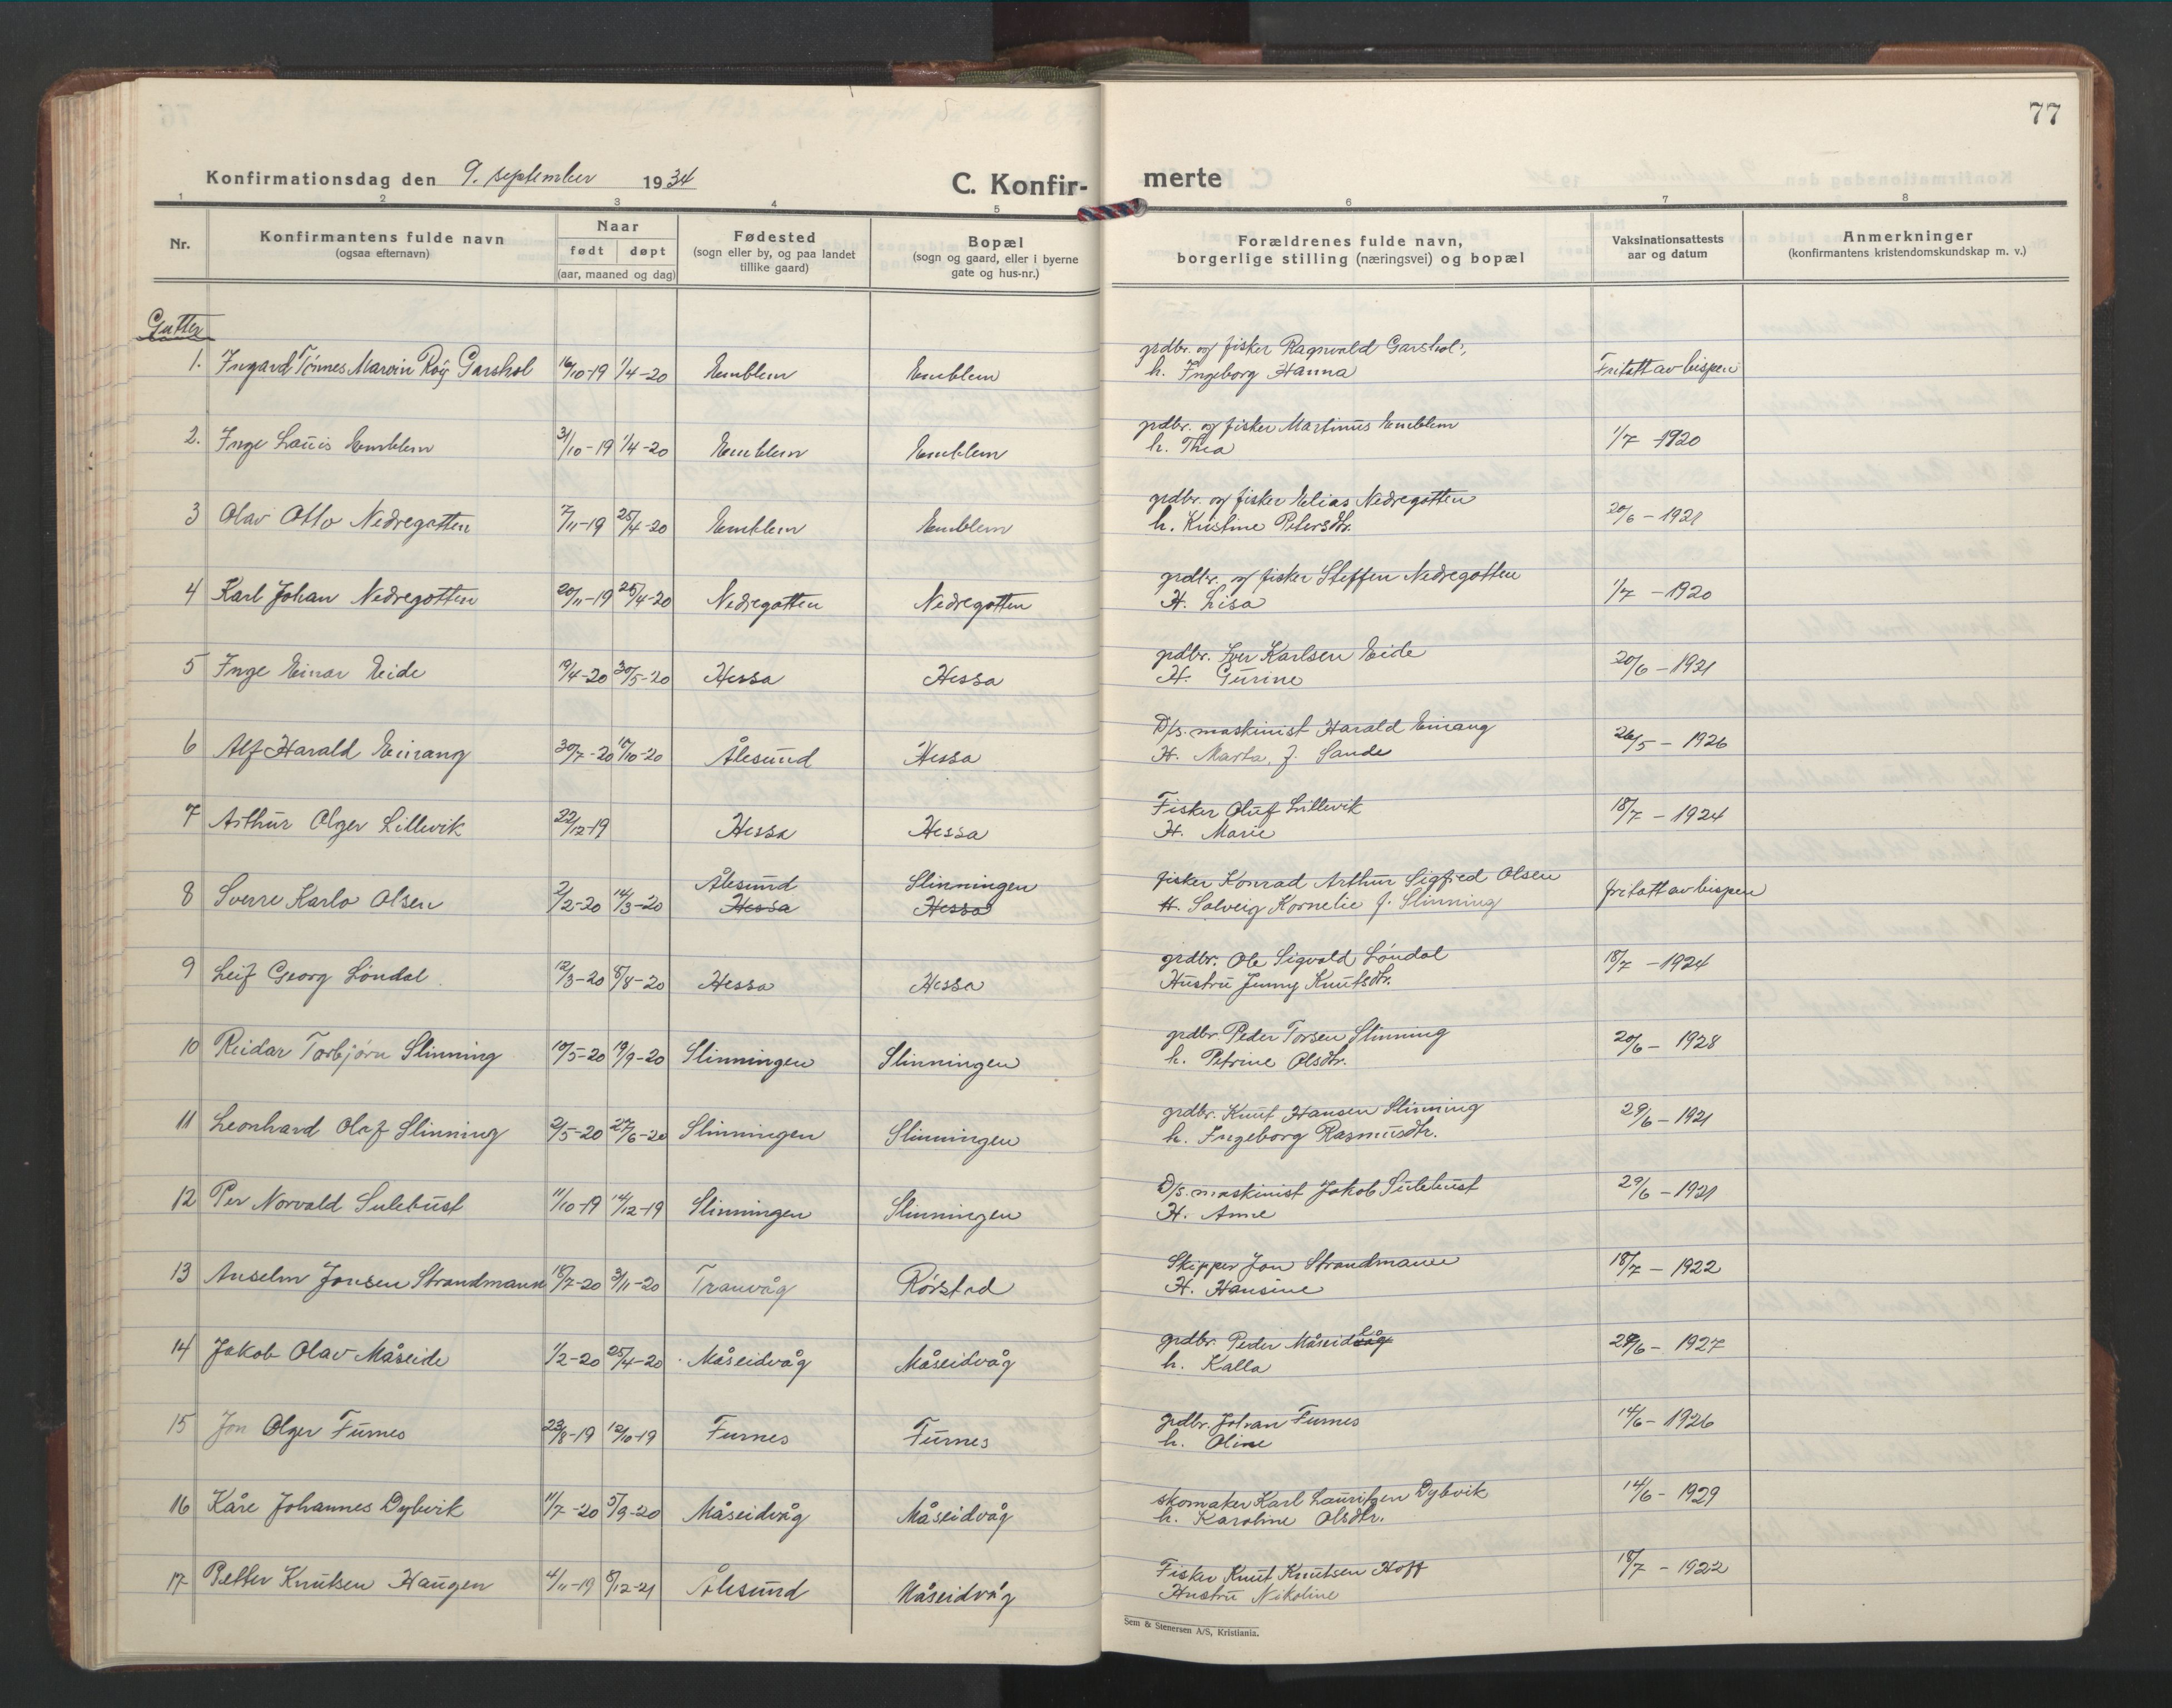 77
Konfirmationsdag den 9. september 1934
C. Konfir-merte
1 2 3 4 5 6 7 8
Nr.
Konfirmantens fulde navn
(ogsaa efternavn)
Naar
født døpt
(aar, maaned og dag)
Fødested
(sogn eller by, og paa landet
tillike gaard)
Bopæl
(sogn og gaard, eller i byerne
gate og hus-nr.)
Forældrenes fulde navn,
borgerlige stilling (næringsvei) og bopæl
Vaksinationsattests
aar og datum
Anmerkninger
(konfirmantens kristendomskundskap m. v.)
Gutter
grdbr. og fisker Ragnvald Garshol,
1. Ingard Tønnes Marvin Røys Garshol 16/10-19 1/4-20 Emblem Emblem h. Ingeborg Hanna Fritatt av bispen
grdbr. og fisker Martinus Emblem
2. Inge Lauis Emblem 31/10-19 1/4-20 Emblem Emblem h. Thea 1/7 1920
grdbr. og fisker Elias Nedregotten
3 Olav Otto Nedregotten 7/11-19 25/4-20 Emblem Emblem h. Kristine Petersdtr. 20/6-1921
grdbr. og fisker Steffen Nedregotten
4 Karl Johan Nedregotten 20/11-19 25/4-20 Nedregotten Nedregotten H. Lisa 1/7-1920
grdbr. Iver Karlsen Eide
5 Inge Einar Eide 19/4-20 30/5-20 Hessa Hessa H. Gurine 20/6-1921
D/s. maskinist Harald Emang
6 Alf Harald Emang 30/7-20 17/10-20 Ålesund Hessa H. Marta f. Sande 26/5-1926
Fisker Oluf Lillevik
7 Arthur Olger Lillevik 22/12-19 Hessa Hessa H. Marie 18/7-1924
Ålesund Slinningen fisker Konrad Arthur Sigfred Olsen
8 Sverre Karlo Olsen 2/2-20 14/3-20 Hessa Hessa H. Solveig Kornelie f. Slinning fritatt av bispen
grdbr. Ole Sigvald Løndal
9 Leif Georg Løndal 12/3-20 8/8-20 Hessa Hessa Hustru Jenny Knutsdtr. 18/7-1924
grdbr. Peder Torsen Slinning
10 Reidar Torbjørn Slinning 10/5-20 19/9-20 Slinningen Slinningen h. Petrine Olsdtr. 20/6-1928
grdbr. Knut Hansen Slinning
11 Leonhard Olaf Slinning 2/5-20 27/6-20 Slinningen Slinningen h. Ingeborg Rasmusdtr. 29/6-1921
D/s. maskinist Jakob Sulebust
12 Per Norvald Sulebust 11/10-19 14/12-19 Slinningen Slinningen H. Anne 29/6-1921
Skipper Jon Strandmann
13 Anselm Jonsen Strandmann 18/7-20 3/11-20 Tranvåg Rørstad H. Hansine 18/7-1922
grdbr. Peder Måseidvåg e
14 Jakob Olav Måseide 1/2-20 25/4-20 Måseidvåg Måseidvåg h. Kalla 28/6-1927
grdbr. Johan Furnes
15 Jon Olger Furnes 22/8-19 12/10-19 Furnes Furnes h. Oline 14/6-1926
skomaker Karl Lauritzen Dybvik
16 Kåre Johannes Dybvik 11/7-20 5/9-20 Måseidvåg Måseidvåg h. Karoline Olsdtr. 14/6-1929
Fisker Knut Knutsen Hoff
17 Petter Knutsen Haugen 4/11-19 8/12-21 Ålesund Måseidvåg Hustru Nikoline 18/7-1922
Sem & Stenersen A/S, Kristiania.